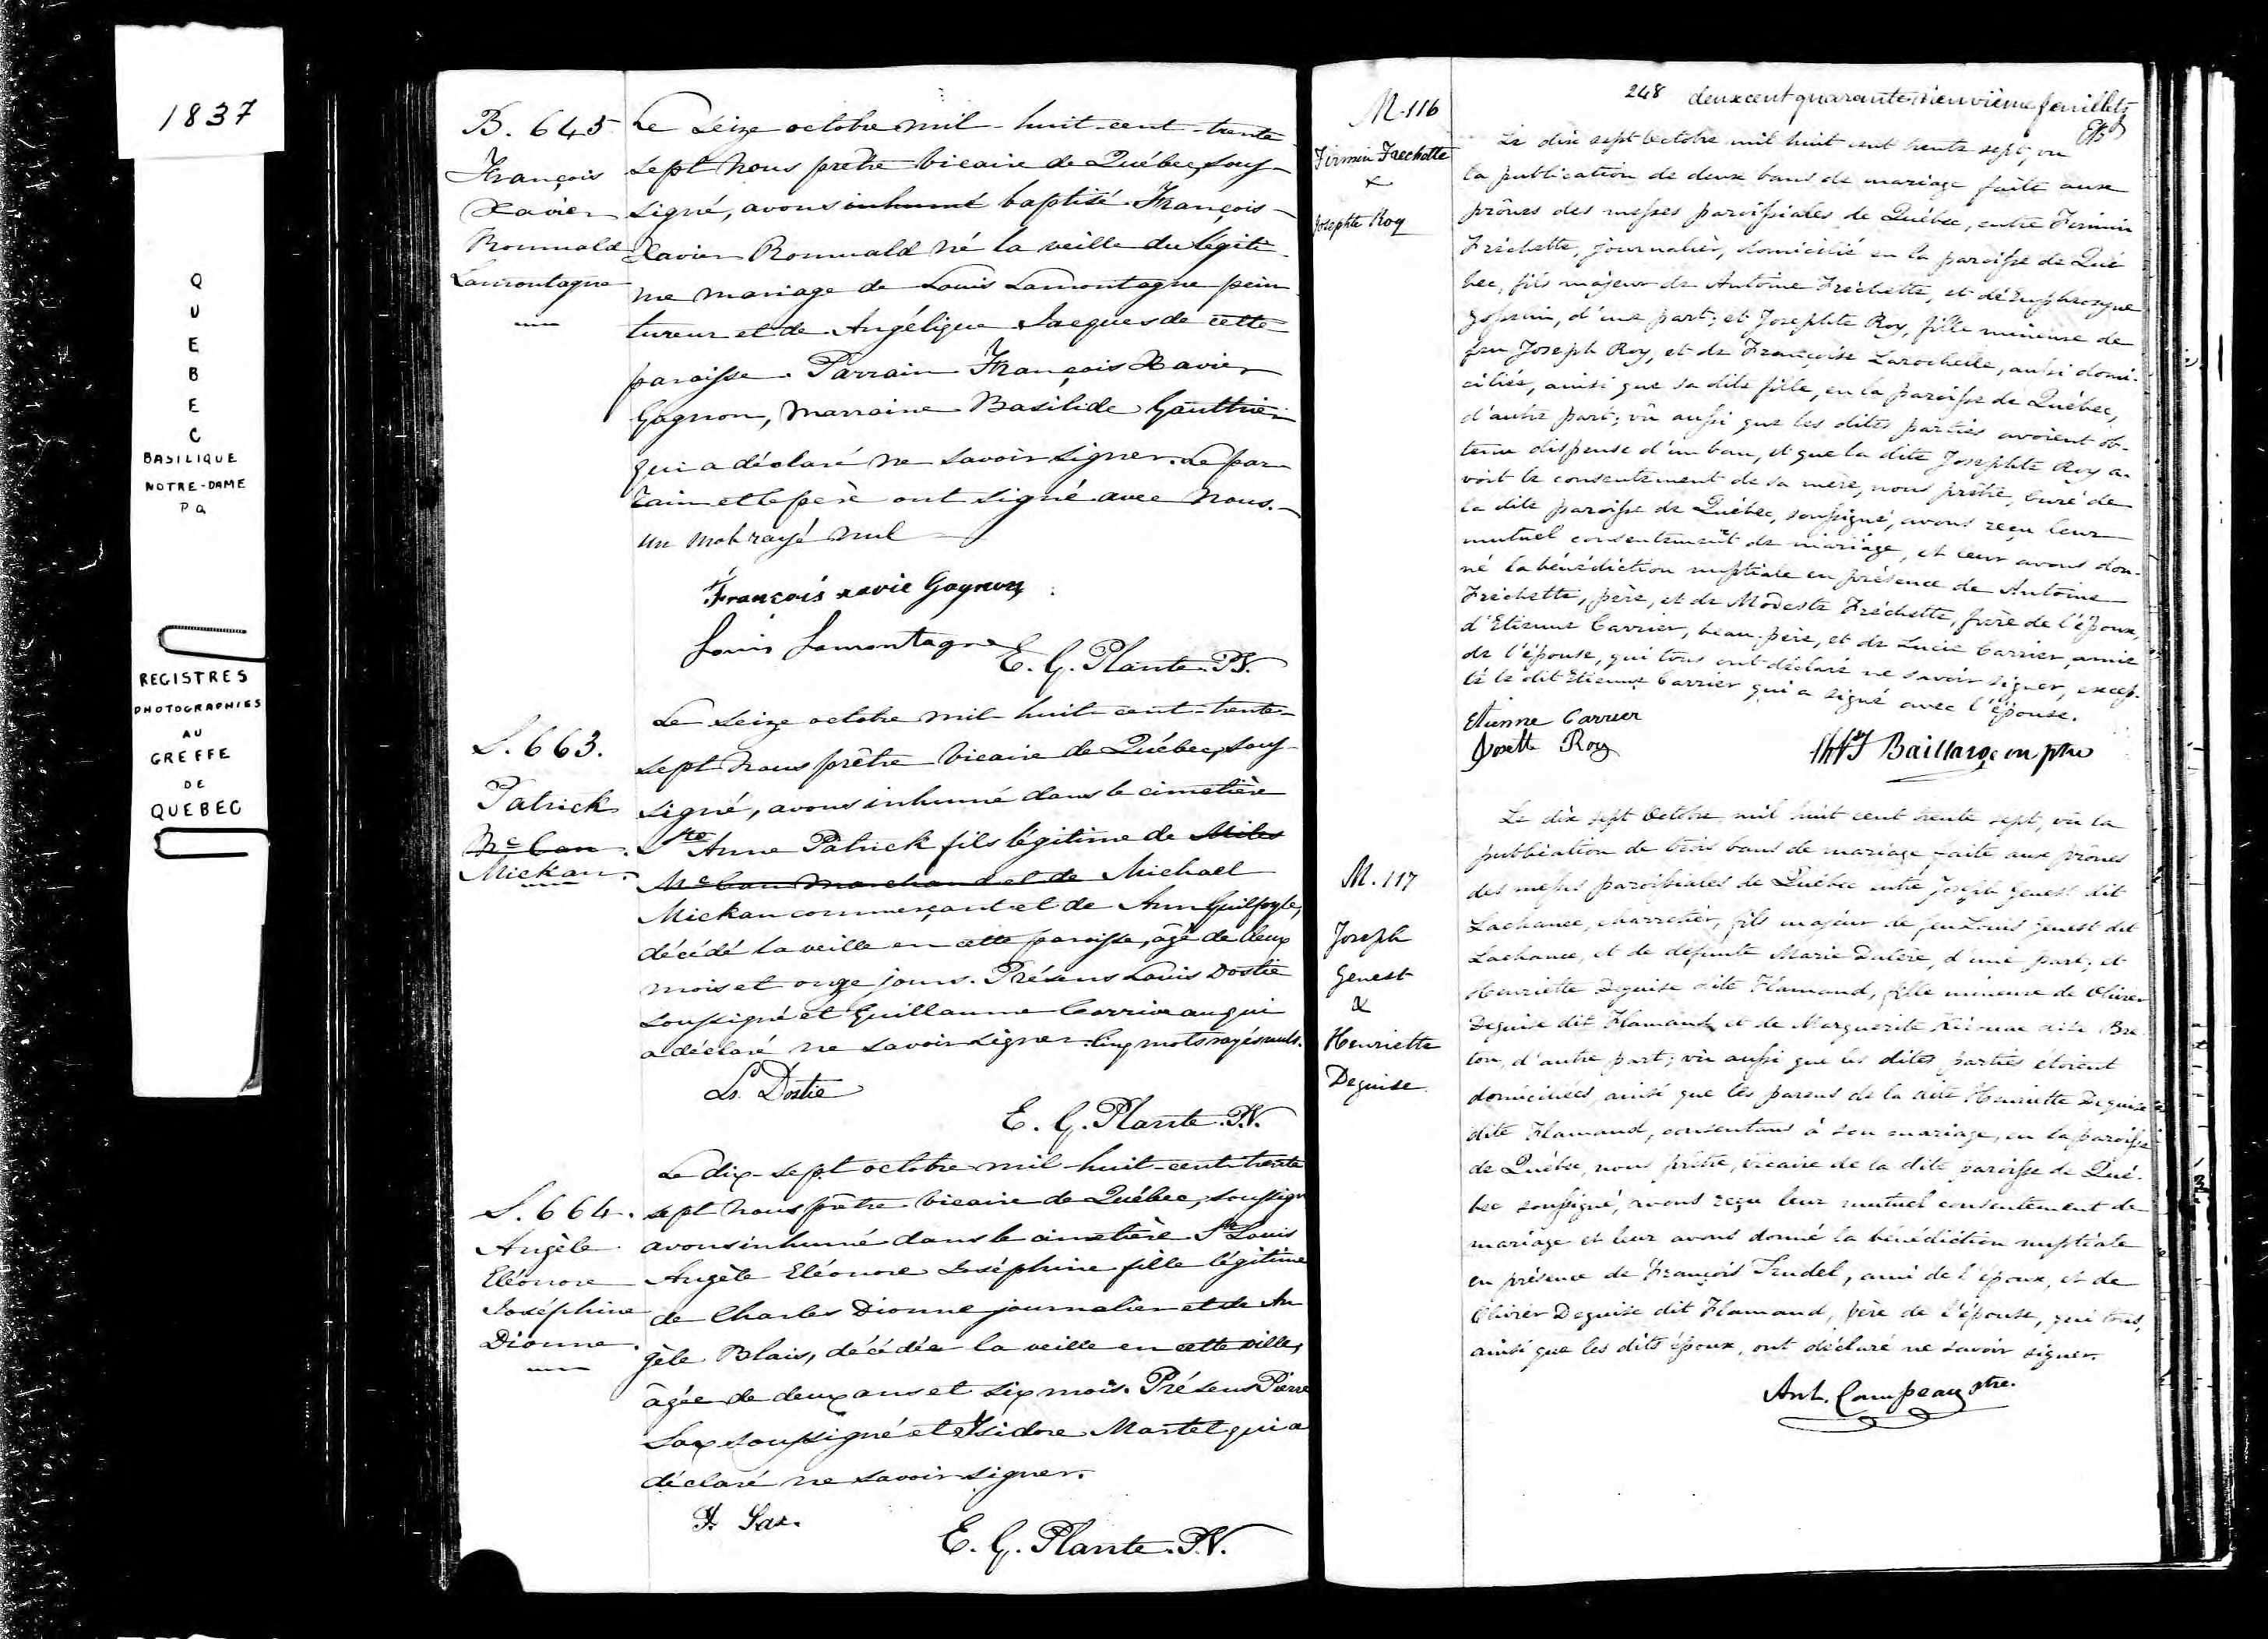 1837
QUEBEC
BASILIQUE
NOTRE-DAME
PQ
REGISTRES
PHOTOGRAPHIES
AU
GREFFE
DE
QUEBEC
B. 645
François
Xavier
Romuald
Lamontagne
Le Seize octobre mil-huit-cent-trente
sept nous prêtre vicaire de Québec, sous-
signé, avons inhumé baptisé François-
Xavier Romuald né la veille du légiti-
me mariage de Louis Lamontagne pein-
tureur et de Angélique Jacques de cette
paroisse. Parrain François Xavier
Gagnon, Marraine Basilide Gauthier
qui a déclaré ne savoir signer. Le par-
rain et le père ont signé avec nous.
un mot rayé nul
François xavie Gagnon
Louis Lamontagne
E. G. Plante. P.V.
S. 663.
Patrick
McCan
Mickan.
Le Seize octobre mil-huit-cent-trente-
sept nous prêtre vicaire de Québec, sous-
signé, avons inhumé dans le cimetière
Ste Anne Patrick fils légitime de Miles
McCan marchand et de Michael
Mickan commerçant et de Ann Guilfoyle,
décédé la veille en cette paroisse, âgé de deux
mois et onze jours. Présens Louis Dostie
soussigné et Guillaume Corriveau qui
a déclaré ne savoir signer. Cinq mots rayés nuls.
Ls. Dostie
E. G. Plante. P.V.
S. 664.
Angèle
Eléonore
Joséphine
Dionne.
Le dix-sept octobre mil-huit-cent-trente
sept nous prêtre vicaire de Québec, soussigné
avons inhumé dans le cimetière St Louis
Angèle Eléonore Joséphine fille légitime
de Charles Dionne journalier et de An
gèle Blais, décédée la veille en cette ville,
âgée de deux ans et six mois. Présens Pierre
Sax soussigné et Isidore Martel qui a
déclaré ne savoir signer.
P. Sax.
E. G. Plante. P.V.
248 deux cent quarante neuvième feuillets
M. 116
Firmin Frechette
&
Josephte Roy
Le dix sept Octobre mil huit cent trente sept, vu
la publication de deux bans de mariage faite aux
prônes des messes paroissiales de Québec, entre Firmin
Fréchette, journalier, domicilié en la paroisse de Qué
bec, fils majeur de Antoine Fréchette, et de Euphrosyne
d'une part; et Josephte Roy, fille mineure de
feu Joseph Roy, et de Françoise Larochelle, aussi domi-
ciliée, ainsi que sa dite fille, en la paroisse de Québec,
d'autre part; vû aussi que les dites parties avoient ob-
tenu dispense d'un ban, et que la dite Josephte Roy a-
voit le consentement de sa mère, nous prêtre, Curé de
la dite paroisse de Québec, soussigné, avons reçu leur
mutuel consentement de mariage, et leur avons don-
né la bénédiction nuptiale en présence de Antoine
Fréchette, père, et de Modeste Fréchette, frère de l'époux,
d'Etienne Carrier, beau-père, et de Lucie Carrier, amie
de l'épouse, qui tous ont déclaré ne savoir signer, excep-
té le dit Etienne Carrier qui a signé avec l'épouse.
Etienne Carrier
Josette Roy
Baillargeon ptre
M. 117
Joseph
Genest
&
Henriette
Deguise
Le dix sept Octobre mil huit cent trente sept, vû la
publication de trois bans de mariage faite aux prônes
des messes paroissiales de Québec entre Joseph Genest dit
Lachance, charretier, fils majeur de feu Louis Genest dit
Lachance, et de défunte Marie d'une part; et
Henriette Deguise dite Flamand, fille mineure de Olivier
Deguise dit Flamand, et de Marguerite dite Bre-
ton, d'autre part; vû aussi que les dites parties etoient
domiciliées, ainsi que les parens de la dite Henriette Deguise
dite Flamand, consentans à son mariage, en la paroisse
de Québec, nous prêtre, vicaire de la dite paroisse de Qué-
bec soussigné, avons reçu leur mutuel consentement de
mariage et leur avons donné la bénédiction nuptiale
en présence de François Trudel, ami de l'époux, et de
Olivier Deguise dit Flamand, père de l'épouse, qui tous,
ainsi que les dits époux, ont déclaré ne savoir signer.
Ant. Campeau ptre.